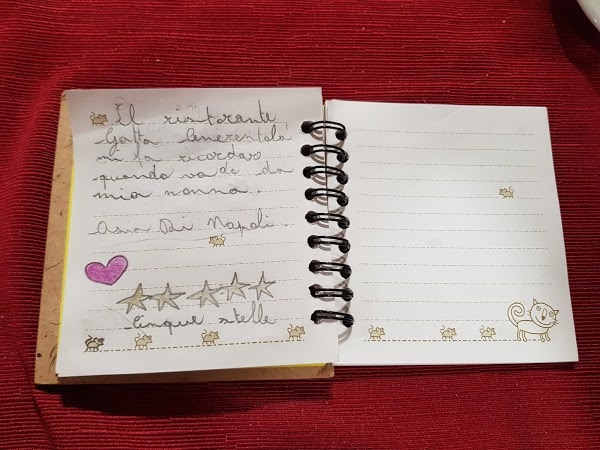 Il ristorante
Gatta Cenerentola
mi fa ricordare
quando vado da
mia nonna.
Asia Di Napoli.
cinque stelle